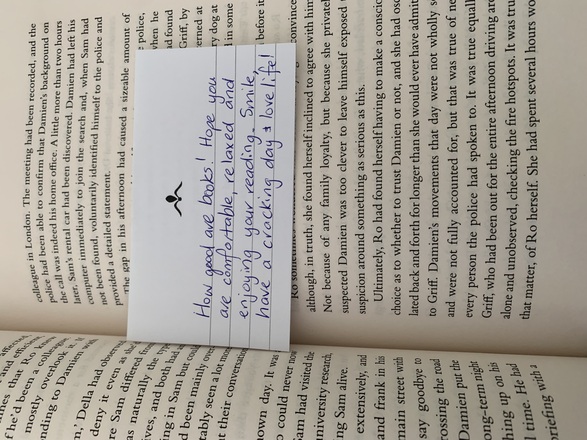 colleague in London. The meeting had been recorded, and the
police had been able to confirm that Damien's background on
the call was indeed his home office. A little more than two hours
later, Sam's rental car had been discovered. Damien had left his
computer immediately to join the search and, when Sam had
not been found, voluntarily identified himself to the police and
provided a detailed statement.
The gap in his afternoon had caused a sizeable amount of
police,
when he
found
Griff, by
erned at
ry dog at
d in some
before it
convince
How good are books! Hope you
are comfortable, relaxed and
enjoying your reading. Smile,
have a cracking day & love life!
although, in truth, she found herself inclined to agree with him
Not because of any family loyalty, but because she privatel
suspected Damien was too clever to leave himself exposed
suspicion around something as serious as this.
Ultimately, Ro had found herself having to make a consci
choice as to whether to trust Damien or not, and she had os
lated back and forth for longer than she would ever have admit
to Griff. Damien's movements that day were not wholly s
and were not fully accounted for, but that was true of ne
every person the police had spoken to. It was true equall
Griff, who had been out for the entire afternoon driving ar
alone and unobserved, checking the fire hotspots. It was tru
that matter, of Ro herself. She had spent several hours wo
mostly overlook it
nding to Damien
Della had
deny it even as
re Sam different
as naturally, the
ives, and both had
ing in Sam but
d been mainly
tably seen a lot
t their conversa
own day. it was
o could never
Sam had visited the
university research,
ng Sam alive.
extensively, and
and frank in his
main street with
say goodbye to
crossing the road
Damien put the
ng-term night
ing up on his
l time. He had
briefing with a